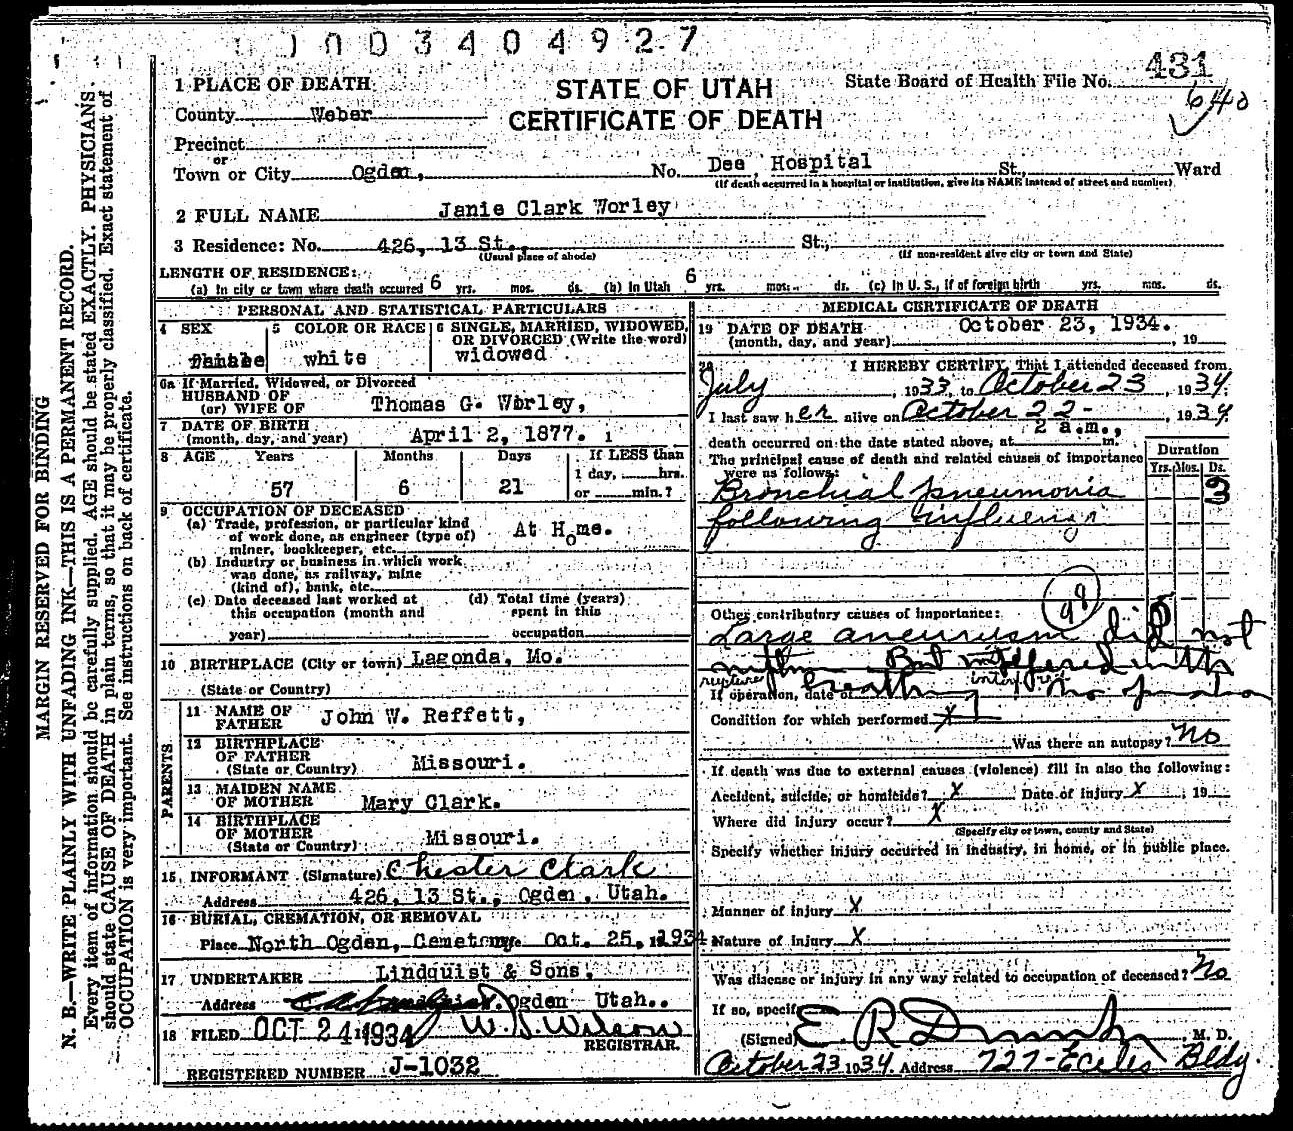 1003404927
STATE OF UTAH
CERTIFICATE OF DEATH
State Board of Health File No. 431
640
1 PLACE OF DEATH
County Weber
Precinct
or
Town or City Ogden, No. Dee Hospital St., Ward
(If death occurred in a hospital or institution, give its NAME instead of street and number)
2 FULL NAME Janie Clark Worley
3 Residence: No. 426, 13 St., St.,
(Usual place of abode) (If non-resident give city or town and State)
LENGTH OF RESIDENCE:
(a) In city or town where death occurred 6 yrs. mos. ds. (b) In Utah 6 yrs. mos. ds. (c) In U. S., if of foreign birth yrs. mos. ds.
PERSONAL AND STATISTICAL PARTICULARS
4 SEX
female
5 COLOR OR RACE
white
6 SINGLE, MARRIED, WIDOWED,
OR DIVORCED (Write the word)
widowed
6a If Married, Widowed, or Divorced
HUSBAND OF
(or) WIFE OF Thomas G. Worley,
7 DATE OF BIRTH
(month, day, and year) April 2, 1877.
8 AGE Years Months Days If LESS than
1 day, hrs.
57 6 21 or min.?
9 OCCUPATION OF DECEASED
(a) Trade, profession, or particular kind
of work done, as engineer (type of)
miner, bookkeeper, etc. At Home.
(b) Industry or business in which work
was done, as railway, mine
(kind of), bank, etc.
(c) Date deceased last worked at
this occupation (month and
year)
(d) Total time (years)
spent in this
occupation
10 BIRTHPLACE (City or town) Lagonda, Mo.
(State or Country)
PARENTS
11 NAME OF
FATHER John W. Reffett,
12 BIRTHPLACE
OF FATHER
(State or Country) Missouri.
13 MAIDEN NAME
OF MOTHER Mary Clark.
14 BIRTHPLACE
OF MOTHER
(State or Country) Missouri.
15 INFORMANT (Signature) Chester Clark
Address 426, 13 St., Ogden, Utah.
16 BURIAL, CREMATION, OR REMOVAL
Place North Ogden, Cemetery Oct. 25, 1934
17 UNDERTAKER Lindquist & Sons,
Address Ogden Utah..
18 FILED OCT 24 1934 W. J. Wilson
REGISTRAR.
REGISTERED NUMBER J-1032
MEDICAL CERTIFICATE OF DEATH
19 DATE OF DEATH
(month, day, and year) October 23, 1934. , 19
20 I HEREBY CERTIFY, That I attended deceased from
July, 1933, to October 23, 1934.
I last saw her alive on October 22-, 1934.
death occurred on the date stated above, at 2 a.m., m.
The principal cause of death and related causes of importance
were as follows:
Duration
Yrs. Mos. Ds.
Bronchial pneumonia 3
following influenza
Other contributory causes of importance:
Large aneurysm did not
rupture But interfered with
ruptured interfered
If operation, date of
Condition for which performed X
Was there an autopsy? No
If death was due to external causes (violence) fill in also the following:
Accident, suicide, or homicide? X Date of injury X, 19
Where did injury occur? X
(Specify city or town, county and State)
Specify whether injury occurred in industry, in home, or in public place.
Manner of injury X
Nature of injury X
Was disease or injury in any way related to occupation of deceased? No
If so, specify
(Signed) E. R. M. D.
October 23 1934. Address 727-Eccles Bldg.
MARGIN RESERVED FOR BINDING
N. B.—WRITE PLAINLY WITH UNFADING INK—THIS IS A PERMANENT RECORD.
Every item of information should be carefully supplied. AGE should be stated EXACTLY. PHYSICIANS
should state CAUSE OF DEATH in plain terms, so that it may be properly classified. Exact statement of
OCCUPATION is very important. See instructions on back of certificate.